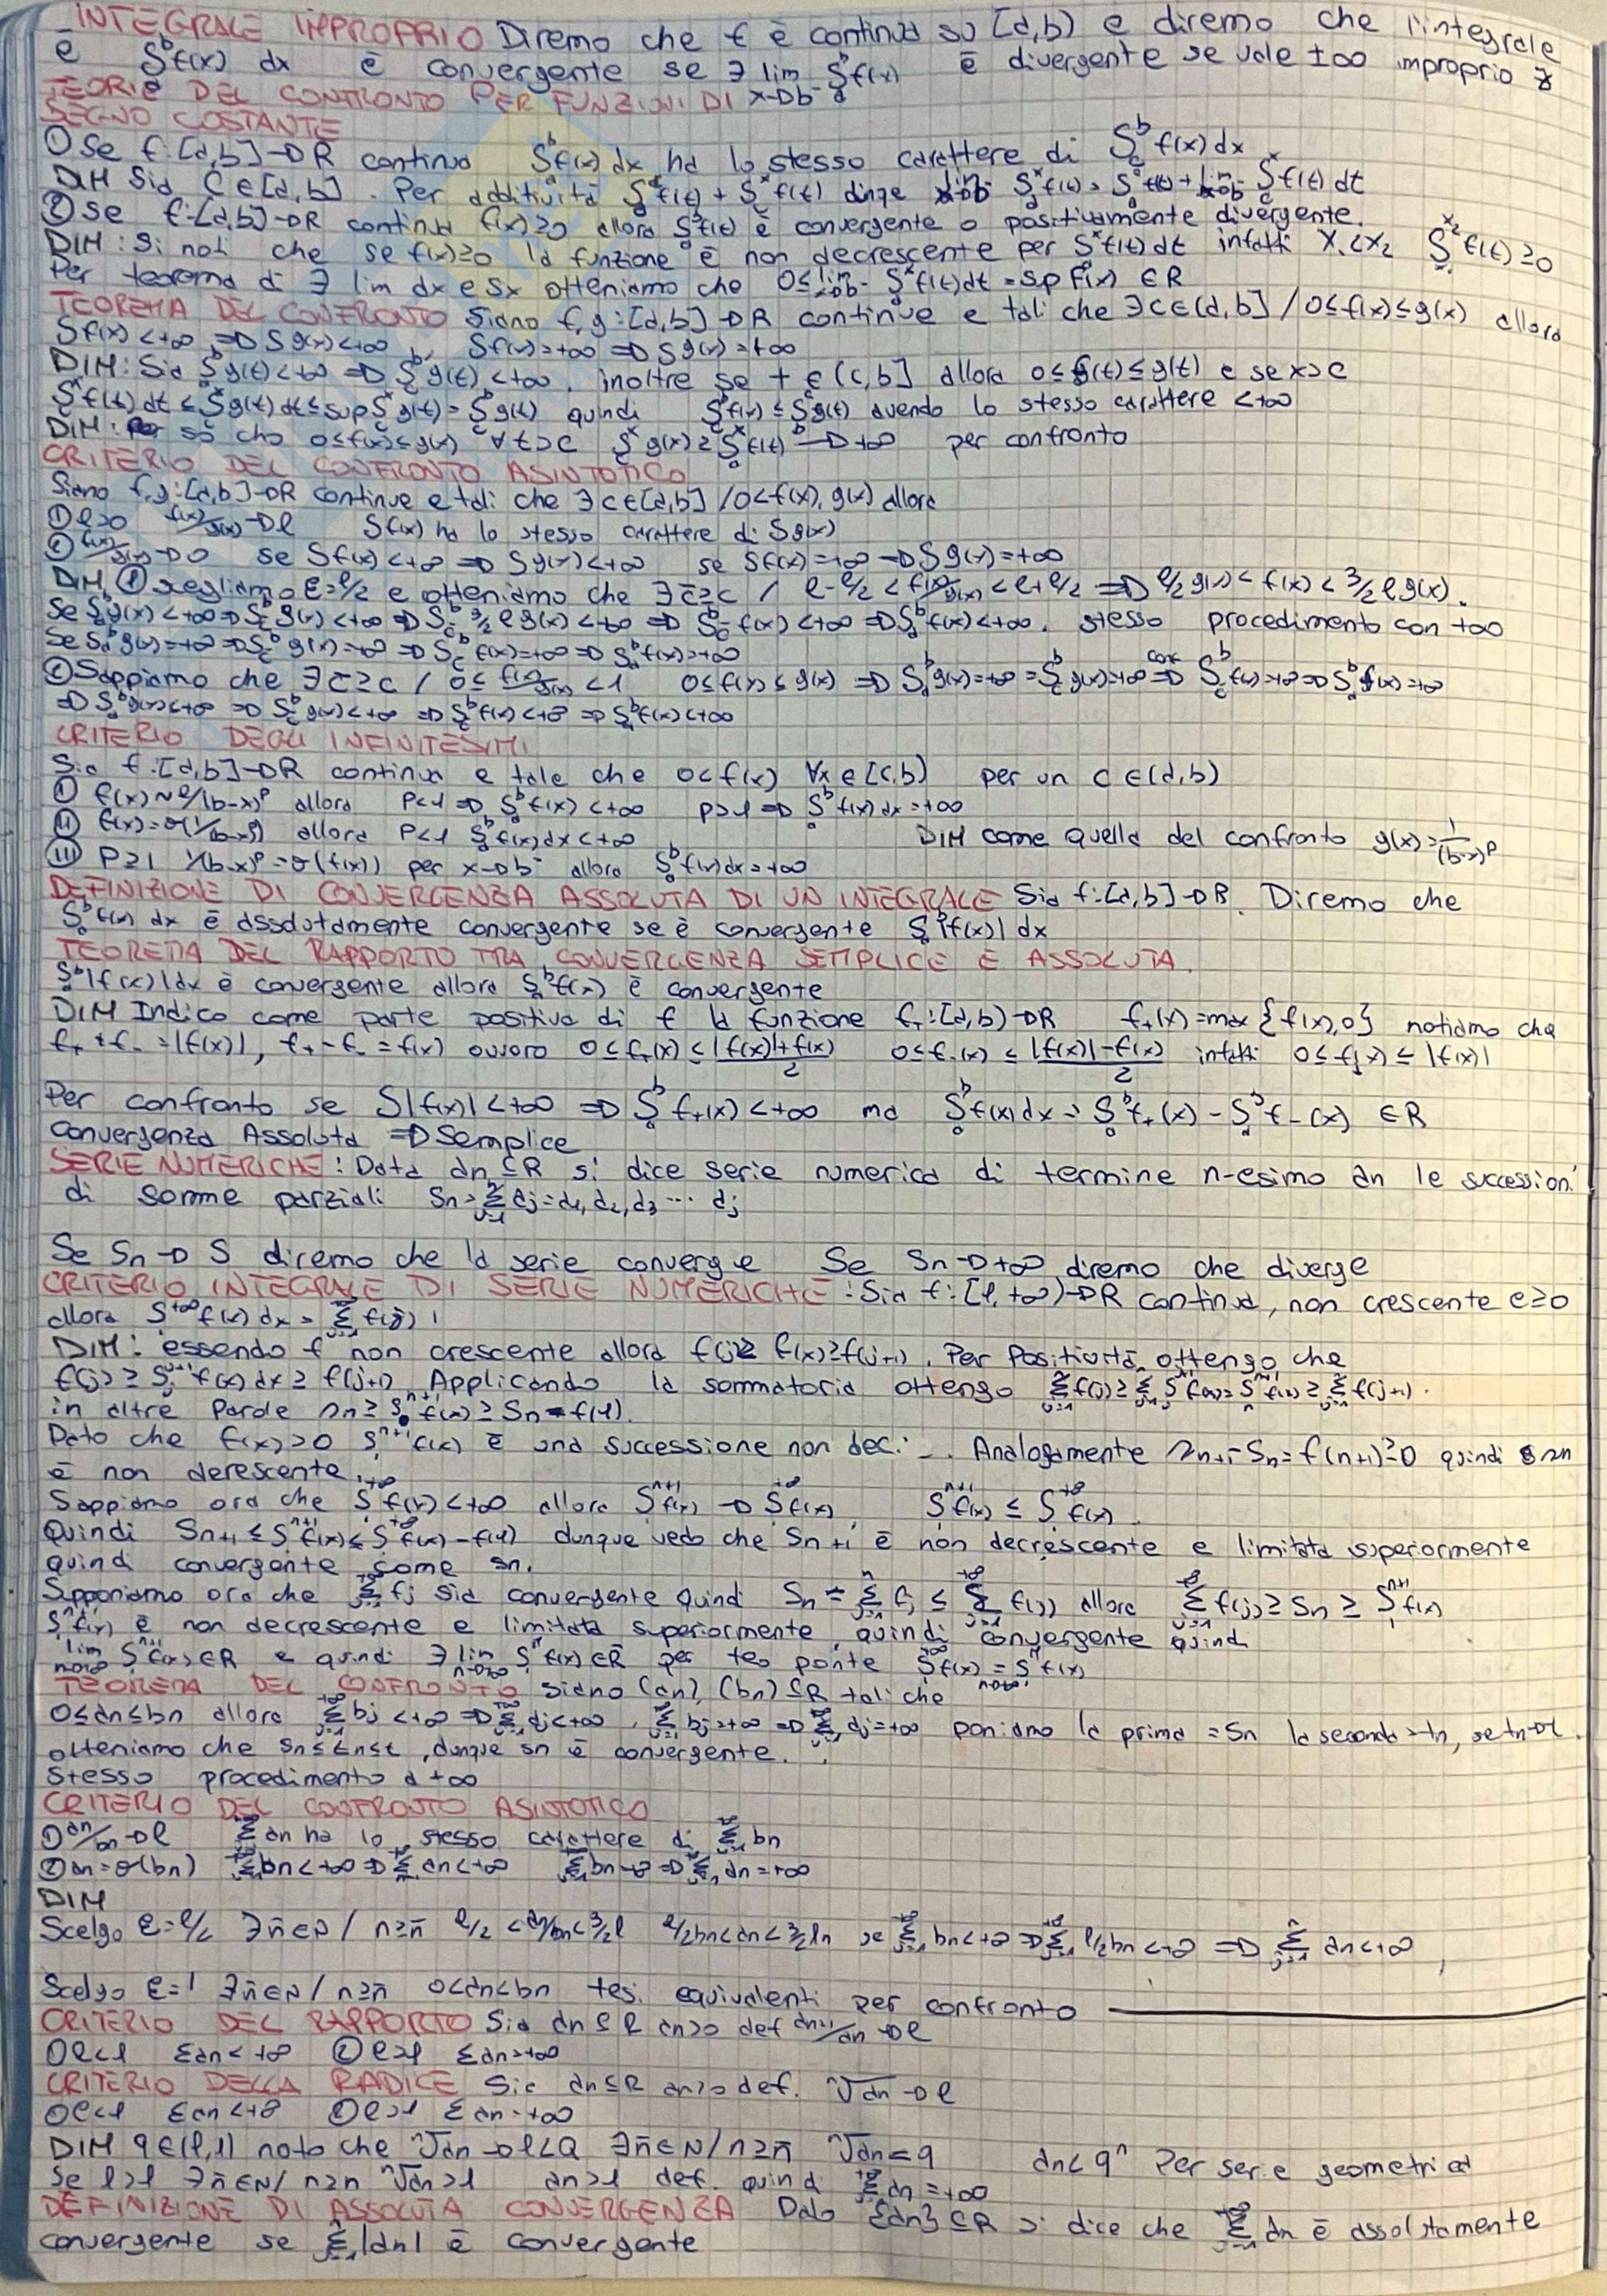 INTEGRALE IMPROPRIO Diremo che f è continua su [a,b) e diremo che l'integrale
è ∫f(x) dx è convergente se ∃ lim ∫f(x) è divergente se vale ±∞ improprio
TEORIE DEL CONFRONTO PER FUNZIONI DI x→b⁻
SEGNO COSTANTE
① Se f:[a,b]→R continua ∫f(x) dx ha lo stesso carattere di ∫f(x) dx
DIM Sia C∈[a,b]. Per additività ∫f(t) + ∫f(t) dunque ∫f(t) = ∫f(t) + ∫f(t) dt
② Se f:[a,b]→R continua f(x)≥0 allora ∫f(t) è convergente o positivamente divergente.
DIM: Si noti che se f(x)≥0 la funzione è non decrescente per ∫f(t) dt infatti x₁<x₂ ∫f(t)≥0
Per teorema di ∃ lim dx e sx otteniamo che 0≤lim ∫f(t)dt = sup F(x) ∈R
TEOREMA DEL CONFRONTO Siano f,g:[a,b]→R continue e tali che ∃c∈(a,b] / 0≤f(x)≤g(x) allora
∫f(x)<+∞ ⇒ ∫g(x)<+∞, ∫f(x)=+∞ ⇒ ∫g(x)=+∞
DIM: Sia ∫g(t)<+∞ ⇒ ∫g(t)<+∞, inoltre se t∈(c,b] allora 0≤f(t)≤g(t) e se x>c
∫f(t)dt ≤ ∫g(t)dt ≤ sup∫g(t) = ∫g(t) quindi ∫f(x) ≤ ∫g(t) avendo lo stesso carattere <+∞
DIM: so che 0≤f(x)≤g(x) ∀t>c ∫g(x) ≥ ∫f(t) → +∞ per confronto
CRITERIO DEL CONFRONTO ASINTOTICO
Siano f,g:[a,b]→R continue e tali che ∃c∈[a,b] / 0<f(x), g(x) allora
① l>0 f(x)/g(x)→l ∫f(x) ha lo stesso carattere di ∫g(x)
② f(x)/g(x)→0 se ∫f(x)<+∞ ⇒ ∫g(x)<+∞ se ∫f(x)=+∞ ⇒ ∫g(x)=+∞
DIM ① scegliamo ε=l/2 e otteniamo che ∃c̄≥c / l-l/2 < f(x)/g(x) < l+l/2 ⇒ l/2 g(x) < f(x) < 3/2 l g(x).
Se ∫g(x)<+∞ ⇒ ∫g(x)<+∞ ⇒ ∫3/2 l g(x)<+∞ ⇒ ∫f(x)<+∞ ⇒ ∫f(x)<+∞. stesso procedimento con +∞
Se ∫g(x)=+∞ ⇒ ∫g(x)=+∞ ⇒ ∫f(x)=+∞ ⇒ ∫f(x)=+∞
② Sappiamo che ∃c̄≥c / 0≤f(x)/g(x)<1 0≤f(x)≤g(x) ⇒ ∫g(x)=+∞ = ∫g(x)=+∞ ⇒ ∫f(x)=+∞ ⇒ ∫f(x)=+∞
⇒ ∫g(x)<+∞ ⇒ ∫g(x)<+∞ ⇒ ∫f(x)<+∞ ⇒ ∫f(x)<+∞
CRITERIO DEGLI INFINITESIMI
Sia f:[a,b]→R continua e tale che 0<f(x) ∀x∈[c,b) per un c∈(a,b)
① f(x)~l/(b-x)ᵖ allora P<1 ⇒ ∫f(x)<+∞ P≥1 ⇒ ∫f(x)dx=+∞
② f(x)=o(1/(b-x)ᵖ) allora P<1 ∫f(x)dx<+∞ DIM come quella del confronto g(x)=1/(b-x)ᵖ
③ P≥1 1/(b-x)ᵖ=o(f(x)) per x→b⁻ allora ∫f(x)dx=+∞
DEFINIZIONE DI CONVERGENZA ASSOLUTA DI UN INTEGRALE Sia f:[a,b]→R. Diremo che
∫f(x) dx è assolutamente convergente se è convergente ∫|f(x)| dx
TEOREMA DEL RAPPORTO TRA CONVERGENZA SEMPLICE E ASSOLUTA.
∫|f(x)|dx è convergente allora ∫f(x) è convergente
DIM Indico come parte positiva di f la funzione f₊:[a,b)→R f₊(x)=max{f(x),0} notiamo che
f₊+f₋=|f(x)|, f₊-f₋=f(x) ovvero 0≤f₊(x)≤|f(x)|+f(x)/2 0≤f₋(x)≤|f(x)|-f(x)/2 infatti 0≤f₊(x)≤|f(x)|
Per confronto se ∫|f(x)|<+∞ ⇒ ∫f₊(x)<+∞ ma ∫f(x)dx = ∫f₊(x) - ∫f₋(x) ∈R
Convergenza Assoluta ⇒ Semplice
SERIE NUMERICHE: Data an⊆R si dice serie numerica di termine n-esimo an le successioni
di somme parziali Sn=Σaj=a₁,a₂,a₃... aj
Se Sn→S diremo che la serie converge Se Sn→+∞ diremo che diverge
CRITERIO INTEGRALE DI SERIE NUMERICHE: Sia f:[1,+∞)→R continua, non crescente e≥0
allora ∫f(x)dx = Σf(j)
DIM: essendo f non crescente allora f(j)≥f(x)≥f(j+1). Per Positività ottengo che
f(j)≥∫f(x)dx≥f(j+1) Applicando la sommatoria ottengo Σf(j)≥Σ∫f(x)=∫f(x)≥Σf(j+1).
in altre parole sn≥∫f(x)≥Sn-f(1).
Dato che f(x)>0 ∫f(x) è una successione non dec. Analogamente sn+1-Sn=f(n+1)≥0 quindi sn
è non derescente.
Sappiamo ora che ∫f(x)<+∞ allora ∫f(x)→∫f(x) ∫f(x)≤∫f(x).
Quindi Sn+1≤∫f(x)≤∫f(x)-f(1) dunque vedo che Sn+1 è non decrescente e limitata superiormente
quindi convergente come sn.
Supponiamo ora che Σfj sia convergente quindi Sn=Σfj≤Σf(j) allora Σf(j)≥Sn≥∫f(x)
∫f(x) è non decrescente e limitata superiormente, quindi convergente quindi
lim ∫f(x)∈R e quindi ∃lim ∫f(x)∈R per teo ponte ∫f(x)=∫f(x)
TEOREMA DEL CONFRONTO Siano (an), (bn)⊆R tali che
0≤an≤bn allora Σbj<+∞ ⇒ Σaj<+∞, Σbj=+∞ ⇒ Σaj=+∞ poniamo la prima =Sn la seconda =tn, se tn→t.
otteniamo che sn≤tn≤t, dunque sn è convergente.
Stesso procedimento a +∞
CRITERIO DEL CONFRONTO ASINTOTICO
① an/bn→l Σan ha lo stesso carattere di Σbn
② an=o(bn) Σbn<+∞ ⇒ Σan<+∞ Σbn=∞ ⇒ Σan=+∞
DIM
Scelgo ε=l/2 ∃n̄∈N / n≥n̄ l/2<an/bn<3/2l l/2bn<an<3/2ln se Σbn<+∞ ⇒ Σl/2bn<+∞ ⇒ Σan<+∞
Scelgo ε=1 ∃n̄∈N / n≥n̄ 0<an<bn tesi equivalenti per confronto
CRITERIO DEL RAPPORTO Sia an⊆R an>0 def an+1/an→l
① l<1 Σan<+∞ ② l>1 Σan=+∞
CRITERIO DELLA RADICE Sia an⊆R an>0 def. ⁿ√an→l
① l<1 Σan<+∞ ② l>1 Σan=+∞
DIM q∈(l,1) noto che ⁿ√an→l<q ∃n̄∈N / n≥n̄ ⁿ√an≤q an<qⁿ Per serie geometrica
Se l>1 ∃n̄∈N / n≥n ⁿ√an>1 an>1 def. quindi Σan=+∞
DEFINIZIONE DI ASSOLUTA CONVERGENZA Dato {an}⊆R si dice che Σan è assolutamente
convergente se Σ|an| è convergente